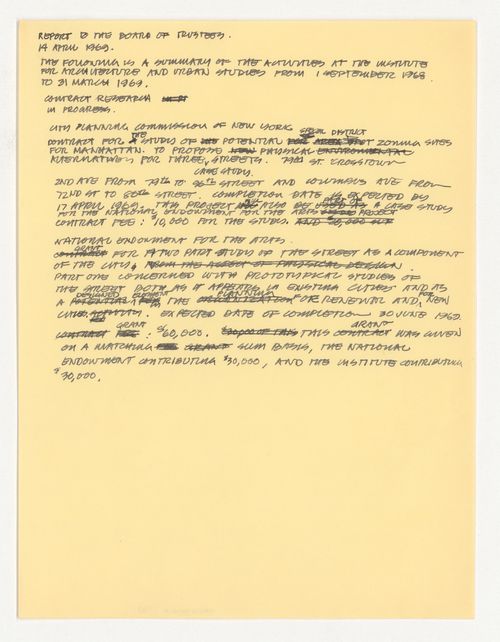 REPORT TO THE BOARD OF TRUSTEES.
14 APRIL 1969.
THE FOLLOWING IS A SUMMARY OF THE ACTIVITIES AT THE INSTITUTE
FOR ARCHITECTURE AND URBAN STUDIES FROM 1 SEPTEMBER 1968
TO 31 MARCH 1969.
CONTRACT RESEARCH
IN PROGRESS.
CITY PLANNING COMMISSION OF NEW YORK SPECIAL DISTRICT
CONTRACT FOR A STUDY OF THE POTENTIAL ZONING SITES
FOR MANHATTAN. TO PROPOSE NEW PHYSICAL ENVIRONMENTAL
ALTERNATIVES FOR THREE STREETS. 79TH ST CROSSTOWN
CASE STUDY.
2ND AVE FROM 79TH TO 96TH STREET AND COLUMBUS AVE FROM
72ND ST TO 86TH STREET. COMPLETION DATE IS EXPECTED BY
17 APRIL 1969. THIS PROJECT WILL ALSO BE USED AS A CASE STUDY
FOR THE NATIONAL ENDOWMENT FOR THE ARTS PROJECT
CONTRACT FEE: 10,000 FOR THE STUDY.
NATIONAL ENDOWMENT FOR THE ARTS.
GRANT
CONTRACT FOR A TWO PART STUDY OF THE STREET AS A COMPONENT
OF THE CITY, FROM THE ASPECT OF PHYSICAL DESIGN.
PART ONE CONCERNED WITH PROTOTYPICAL STUDIES OF
THE STREET BOTH AS IT APPEARS IN EXISTING CITIES AND AS
DESIGNED ELEMENT PLANNING
A POTENTIAL THE FOR RENEWAL AND, FOR NEW
EXPECTED DATE OF COMPLETION 30 JUNE 1969.
GRANT GRANT
CONTRACT FEE: $60,000. THIS CONTRACT WAS GIVEN
ON A MATCHING GRANT SUM BASIS, THE NATIONAL
ENDOWMENT CONTRIBUTING $30,000, AND THE INSTITUTE CONTRIBUTING
$30,000.